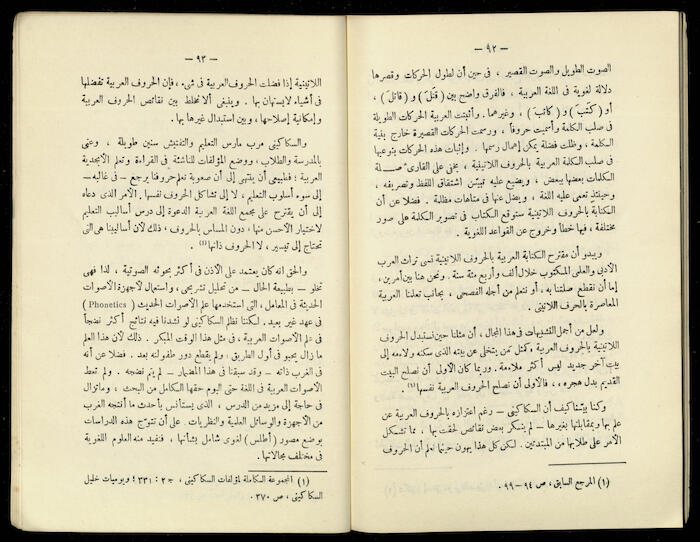 — ٩٢ —
الصوت الطويل والصوت القصير ، فى حين أن لطول الحركات وقصرها
دلالة لغوية فى اللغة العربية ، فالفرق واضح بين ( قتل ) و ( قاتل ) ،
أو ( كتب ) و ( كاتب ) ، وغيرهما . وأثبتت العربية الحركات الطويلة
فى صلب الكلمة وأسميت حروفاً ، ورسمت الحركات القصيرة خارج بنية
الكلمة ، وظلت فضلة يمكن إهمال رسمها . وإثبات هذه الحركات بنوعيها
فى صلب الكلمة العربية بالحروف اللاتينية ، يخفى على القارىء صلة
الكلمات بعضها ببعض ، ويضيع عليه تبين اشتقاق اللفظ وتصريفه ،
وحينئذ تعمى عليه اللغة ، ويضل عنها فى متاهات مظلمة . فضلا عن أن
الكتابة بالحروف اللاتينية ستوقع الكتاب فى تصوير الكلمة على صور
مختلفة ، فيها خطأ وخروج عن القواعد اللغوية .
ويبدو أن مقترح الكتابة العربية بالحروف اللاتينية نسى تراث العرب
الأدبى والعلمى المكتوب خلال ألف وأربع مئة سنة . ونحن هنا بين أمرين ،
إما أن نقطع صلتنا به ، أو نتعلم من أجله الفصحى ، بجانب تعلمنا العربية
المعاصرة بالحرف اللاتينى .
ولعل من أجمل التشبيهات فى هذا المجال ، أن مثلنا حين نستبدل الحروف
اللاتينية بالحروف العربية ، كمثل من يتخلى عن بيته الذى سكنه ولاءمه إلى
بيت آخر جديد ليس أكثر ملاءمة . وربما كان الأولى أن نصلح البيت
القديم بدل هجره . ، فالأولى أن نصلح الحروف العربية نفسها (١) .
وكنا بينا كيف أن السكاكينى – رغم اعتزازه بالحروف العربية عن
علم بها وبمقابلتها بغيرها – لم ينكر بعض نقائص لحقت بها ، مما تشكل
الأمر على طلابها من المبتدئين . لكن كل هذا يهون حينما نعلم أن الحروف
(١) المرجع السابق ، ص ٩٤ – ٩٩ .
— ٩٣ —
اللاتينية إذا فضلت الحروف العربية فى شىء ، فإن الحروف العربية تفضلها
فى أشياء لا يستهان بها . وينبغى ألا نخلط بين نقائص الحروف العربية
وإمكانية إصلاحها ، وبين استبدال غيرها بها .
والسكاكينى مرب مارس التعليم والتفتيش سنين طويلة ، وعنى
بالمدرسة والطلاب ، ووضع المؤلفات للناشئة فى القراءة وتعلم الأبجدية
العربية ؛ فطبيعى أن ينتهى إلى أن صعوبة تعلم حروفها يرجع – فى غالبه –
إلى سوء أسلوب التعليم ، لا إلى تشاكل الحروف نفسها . الأمر الذى دعاه
إلى أن يقترح على مجمع اللغة العربية الدعوة إلى درس أساليب التعليم
لاختيار الأحسن منها ، دون المساس بالحروف ، ذلك لأن أساليبنا هى التى
تحتاج إلى تيسير ، لا الحروف ذاتها (١) .
والحق انه كان يعتمد على الأذن فى أكثر بحوثه الصوتية ، لذا فهى
تخلو – بطبيعة الحال – من تحليل تشريحى ، واستعمال لأجهزة الأصوات
الحديثة فى المعامل ، التى استخدمها علم الأصوات الحديث ( Phonetics )
فى عهد غير بعيد . لكننا نظلم السكاكينى لو نشدنا فيه نتائج أكثر نضجاً
فى علم الأصوات العربية ، فى مثل هذا الوقت المبكر . ذلك لأن هذا العلم
ما زال يحبو فى أول الطريق ، ولم يقطع دور طفولته بعد . فضلا عن أنه
فى الغرب ذاته – وقد سبقنا فى هذا المضمار – لم يتم نضجه . ولم تعط
الأصوات العربية فى اللغة حتى اليوم حقها الكامل من البحث ، وما تزال
فى حاجة إلى مزيد من الدرس ، الذى يستأنس بأحدث ما أنتجه الغرب
من الأجهزة والوسائل العلمية والنظريات . على أن تتوج هذه الدراسات
بوضع مصور ( أطلس ) لغوى شامل بشأنها ، فتفيد منه العلوم اللغوية
فى مختلف مجالاتها .
(١) المجموعة الكاملة لمؤلفات السكاكينى ، ج ٢ : ٣٣١ ؛ ويوميات خليل
السكاكينى ، ص ٣٧٠ .